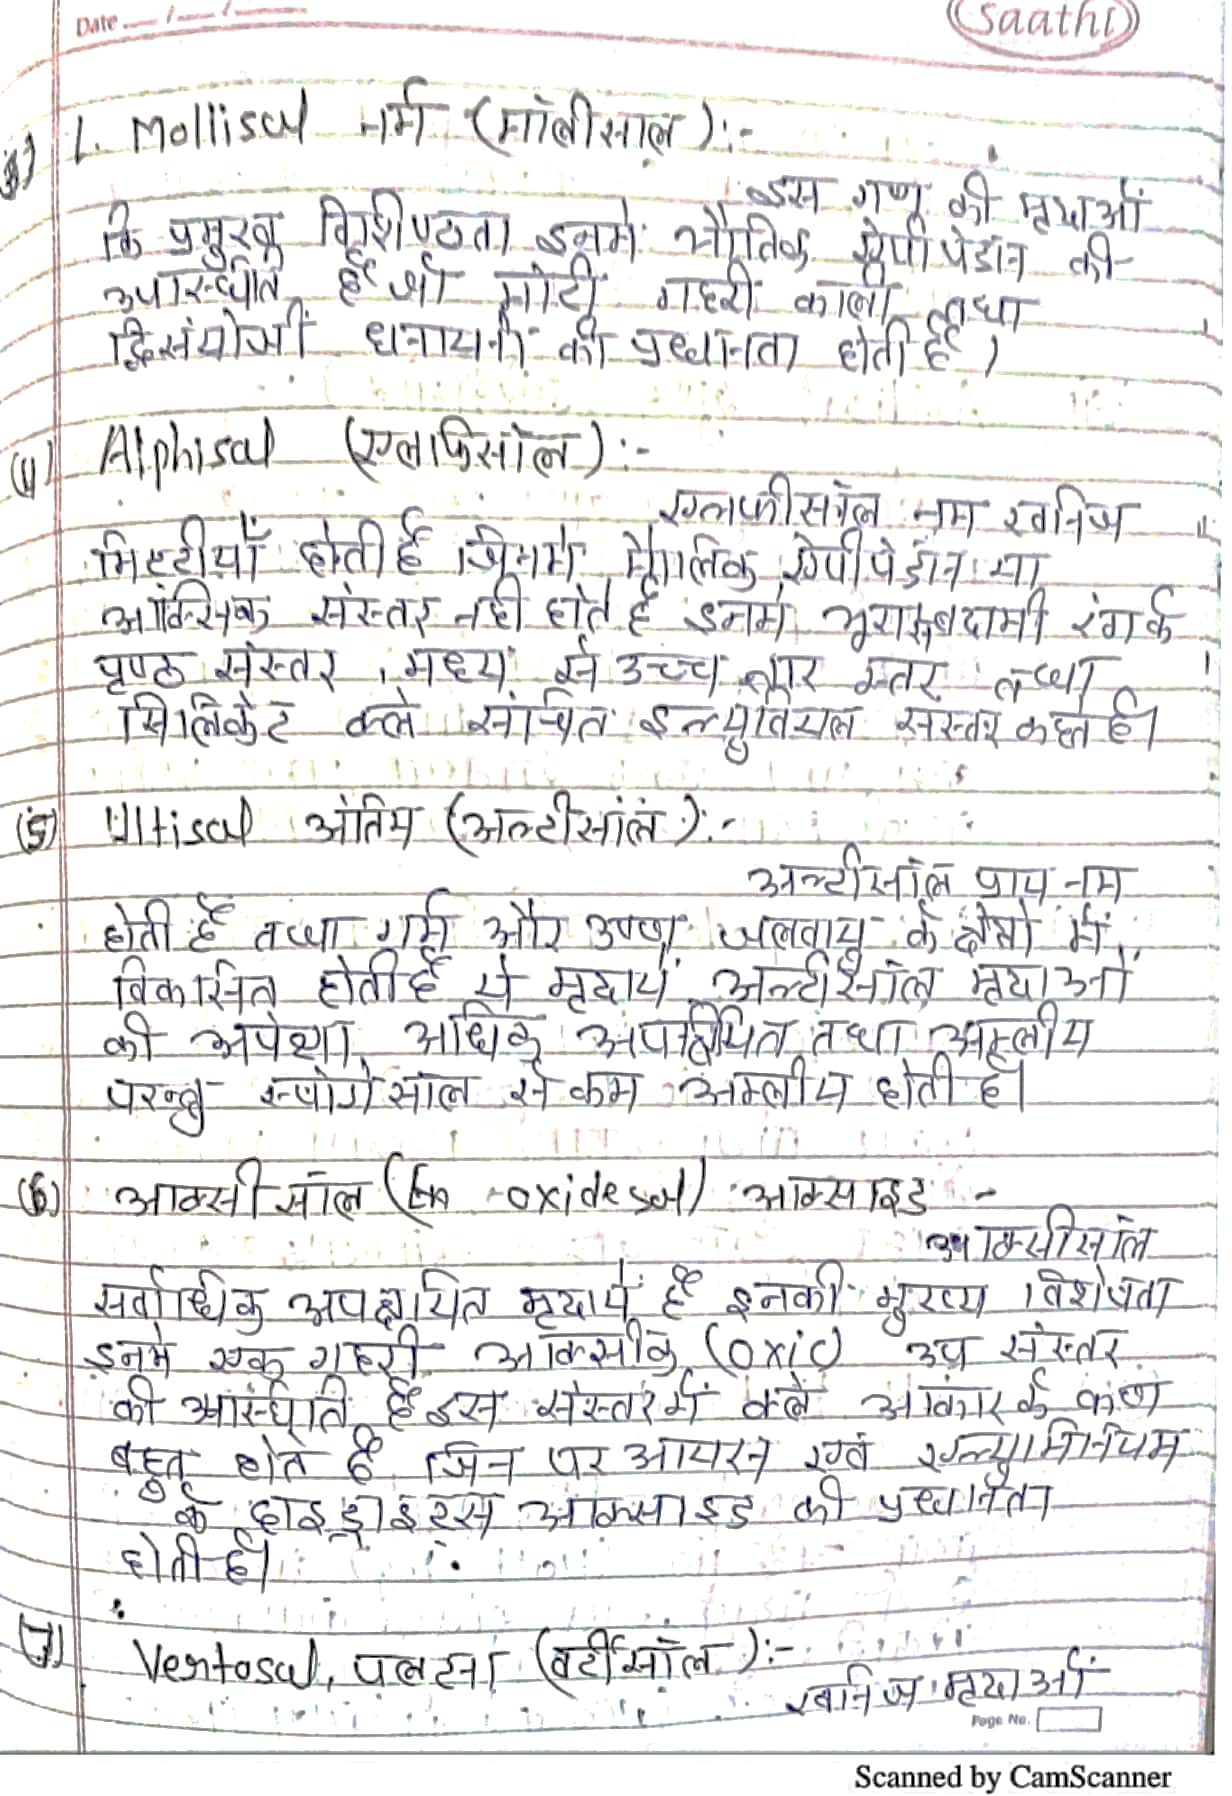 Date
Saathi
3) 1. Mollisol नर्म (मॉलीसाल):-
इस गण की मृदाओं
कि प्रमुख विशिष्ठता इनमे भौतिक ऐपीपेडान की
उपास्थीति है जो मोटी गहरी काली तथा
द्विसंयोजी धनायनों की प्रधानता होती है।
(4) Alphisal (एलफिसॉल):-
एलफीसॉल नम खनिज
मिट्टीयाँ होती है जिनमे मौलिक ऐपीपेडॉन या
ऑक्सिक संस्तर नही होते है इनमे भूरा बदामी रंग के
पृष्ठ संस्तर, मध्य से उच्च क्षार स्तर तथा
सिलिकेट क्ले संचित इल्युवियल संस्तर कहते है।
(5) Ultisal अंतिम (अल्टीसॉल):-
अल्टीसॉल प्राय नम
होती है तथा गर्म और उष्ण जलवायु के क्षेत्रो में
विकासित होती है ये मृदायें अल्टीसॉल मृदाओ
की अपेक्षा अधिक अपक्षीयित तथा अम्लीय
परन्तु स्पोगेसॉल से कम अम्लीय होती है।
(6) आक्सीसॉल (En oxidesol) आक्साइड -
आक्सीसॉल
सर्वाधिक अपक्षयित मृदायें है इनकी मुख्य विशेषता
इनमे एक गहरी आक्सीक (oxic) उप संस्तर
की आस्थिति है इस संस्तर में क्ले आकार के कण
बहुत होते है जिन पर आयरन एवं एल्युमिनियम
के हाइड्राइस आक्साइड की प्रधानता
होती है।
(7) Vertosal, पलटना (वर्टीसॉल):-
खनिज मृदाओं
Page No.
Scanned by CamScanner